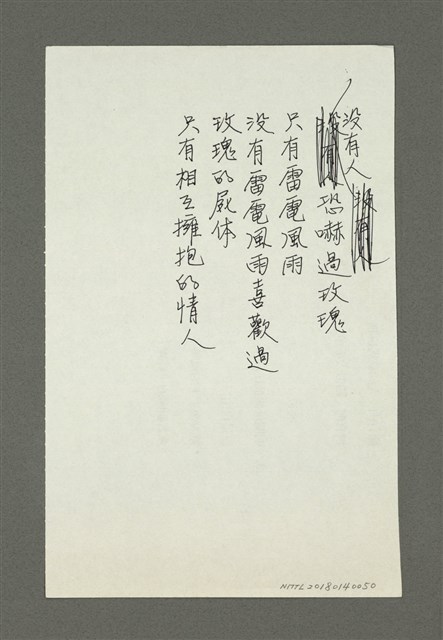 沒有人
恐嚇過玫瑰
只有雷電風雨
沒有雷電風雨喜歡過
玫瑰的屍体
只有相互擁抱的情人
NMTL20180140050